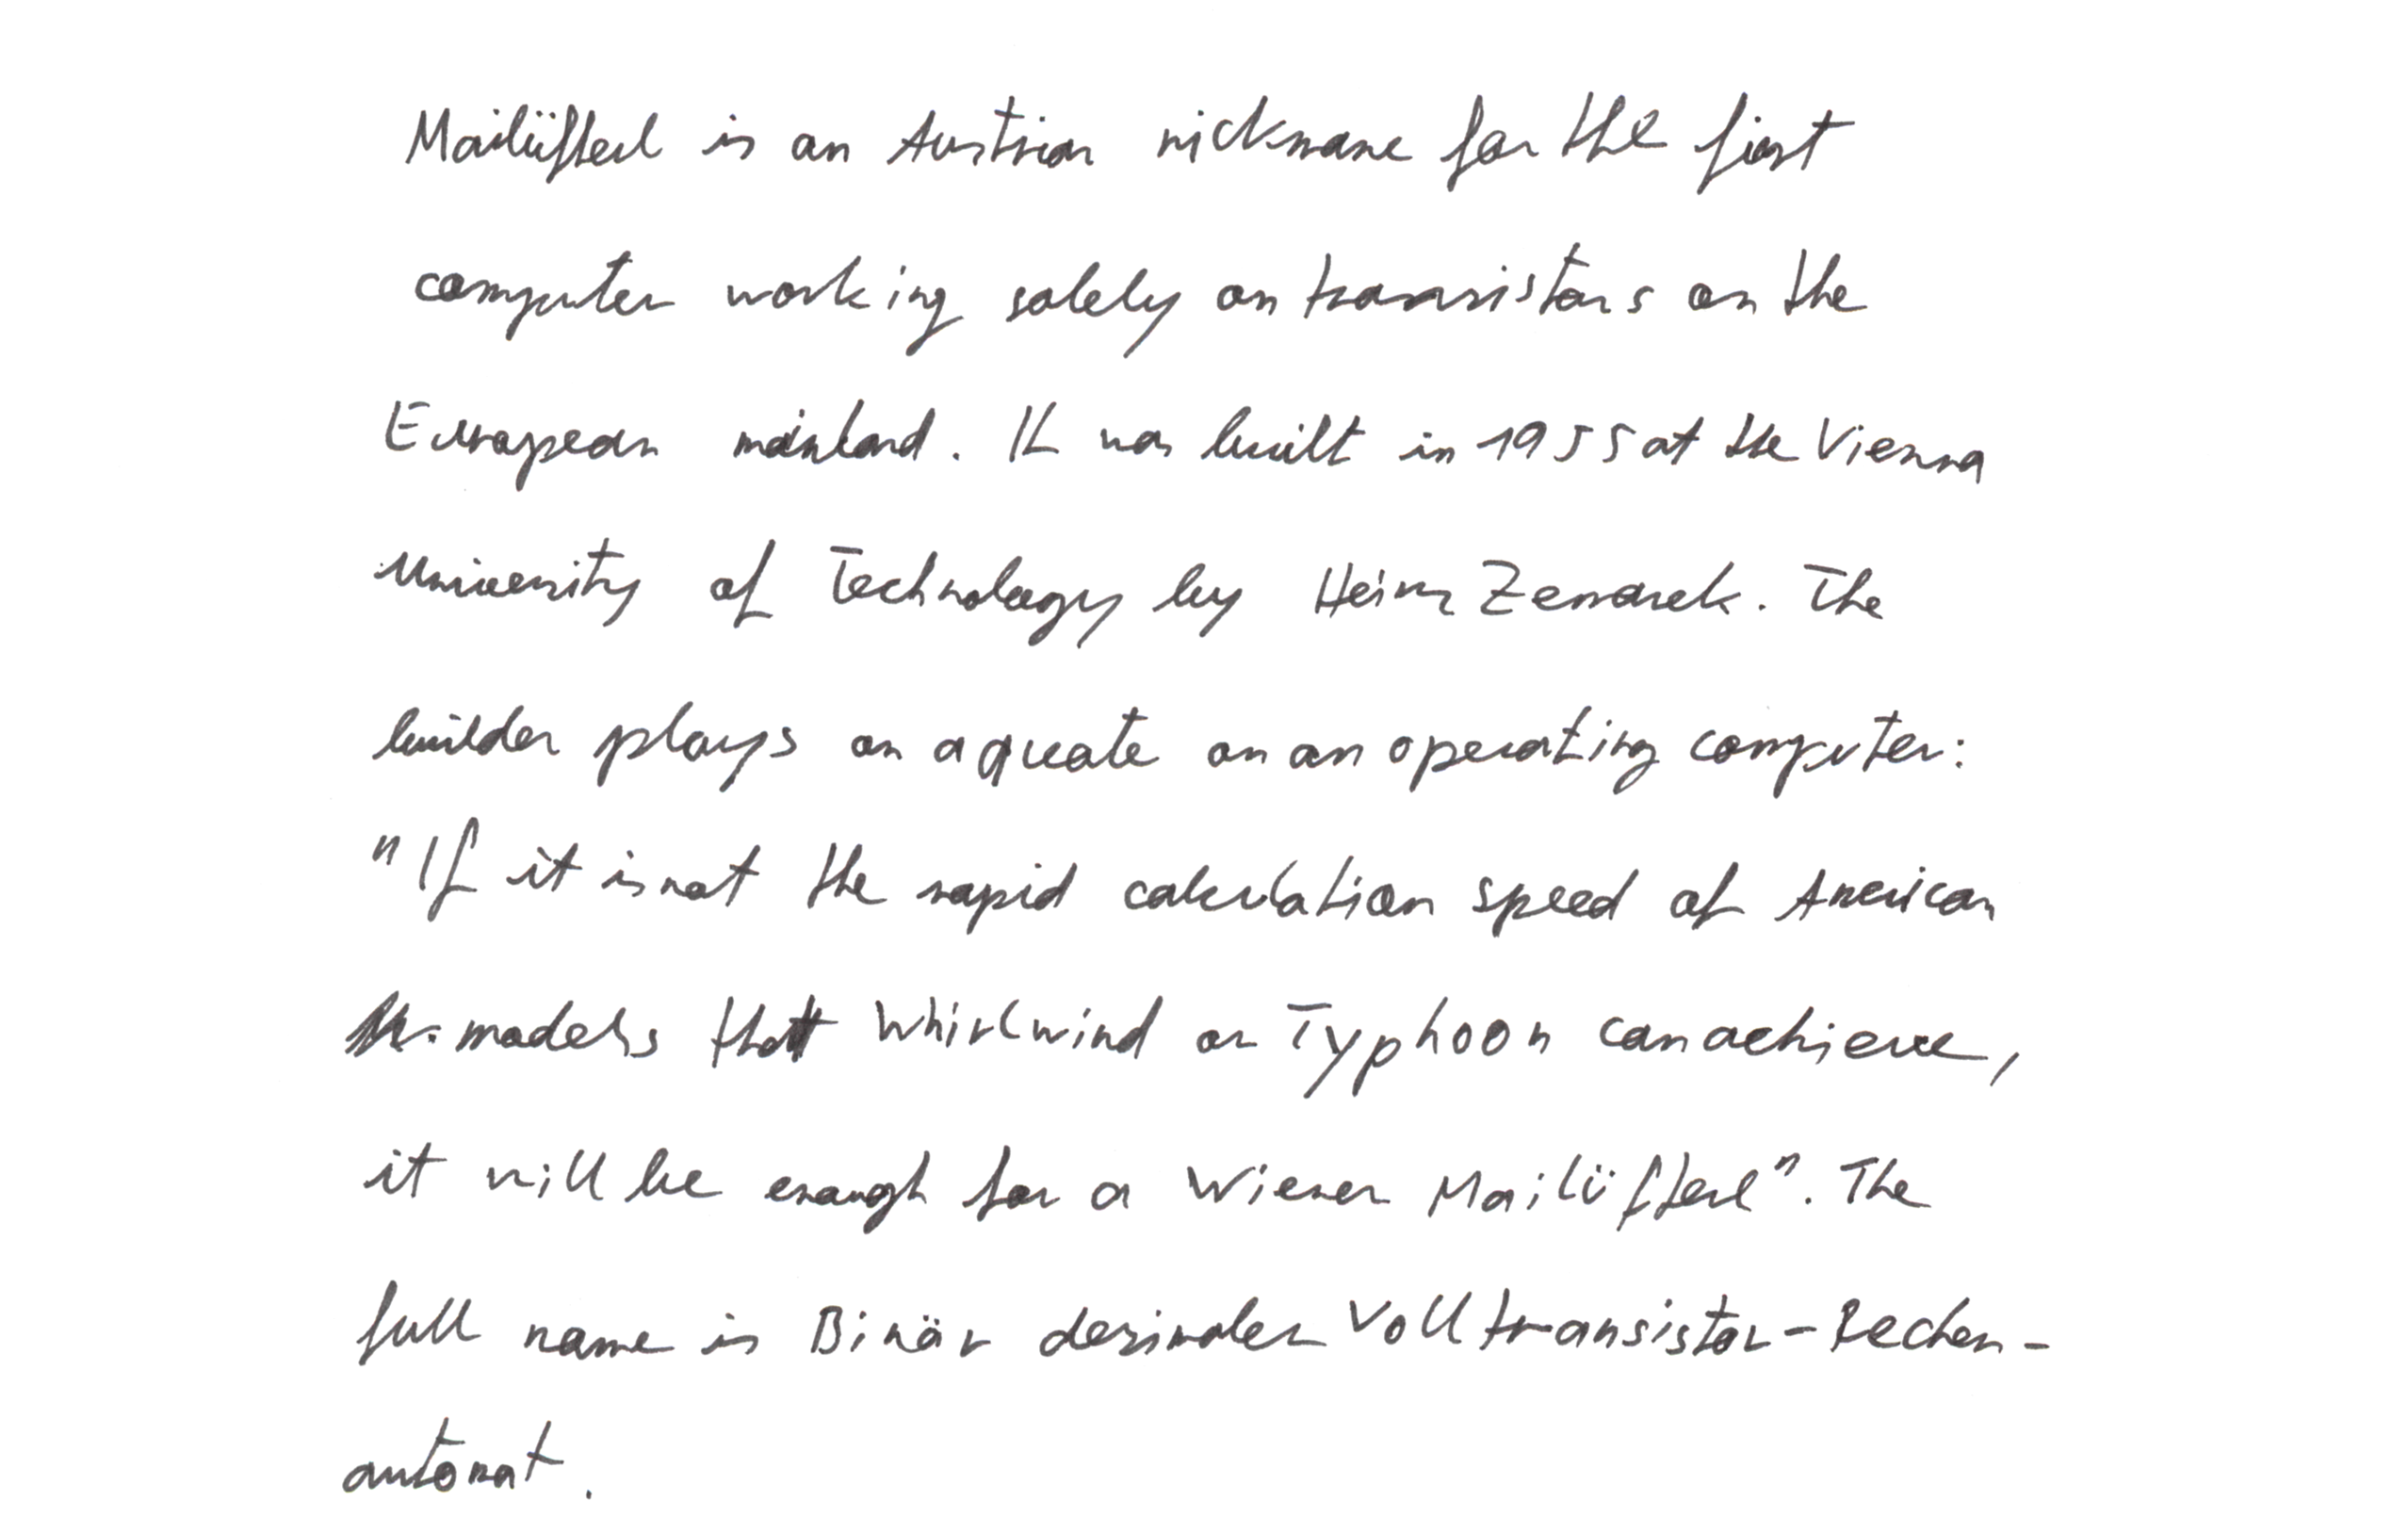 Mailüfterl is an Austrian nickname for the first
computer working solely on transistors on the
European mainland. It was built in 1955 at the Vienna
University of Technology by Heinz Zemanek. The
builder plays on a quote on an operating computer:
"If it is not the rapid calculation speed of American
models that Whirlwind or Typhoon can achieve,
it will be enough for a Wiener Mailüfterl". The
full name is Binär dezimaler Volltransistor-Rechen-
automat.